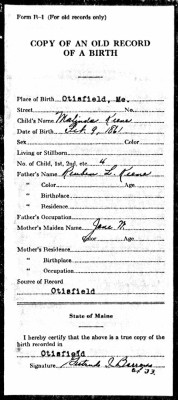 Form R-1 (For old records only)
COPY OF AN OLD RECORD
OF A BIRTH
Place of Birth Otisfield, Me.
Street No.
Child's Name Malinda Keene
Date of Birth Feb 9, 1861
Sex Color
Living or Stillborn
No. of Child, 1st, 2nd, etc. 4
Father's Name Reuben L. Keene
" Color Age
" Birthplace
" Residence
Father's Occupation
Mother's Maiden Name Jane N.
Color Age
Mother's Residence
" Birthplace
" Occupation
Source of Record
Otisfield
State of Maine
I hereby certify that the above is a true copy of the
birth recorded in
Otisfield
Signature